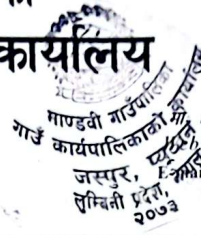 कार्यालय
माण्डवी गाउँपालिका
गाउँ कार्यपालिकाको कार्यालय
जस्पुर, प्यूठान
लुम्बिनी प्रदेश, नेपाल
२०७३